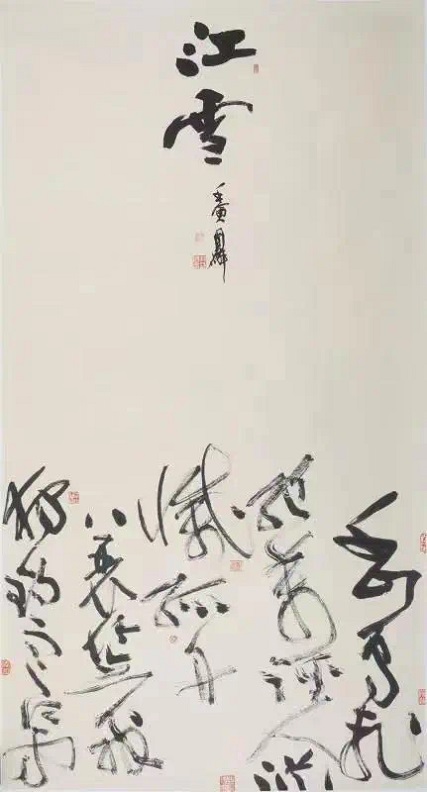 江雪
千山鳥飛
絕萬徑人蹤
滅孤舟
蓑笠翁
獨釣寒江雪